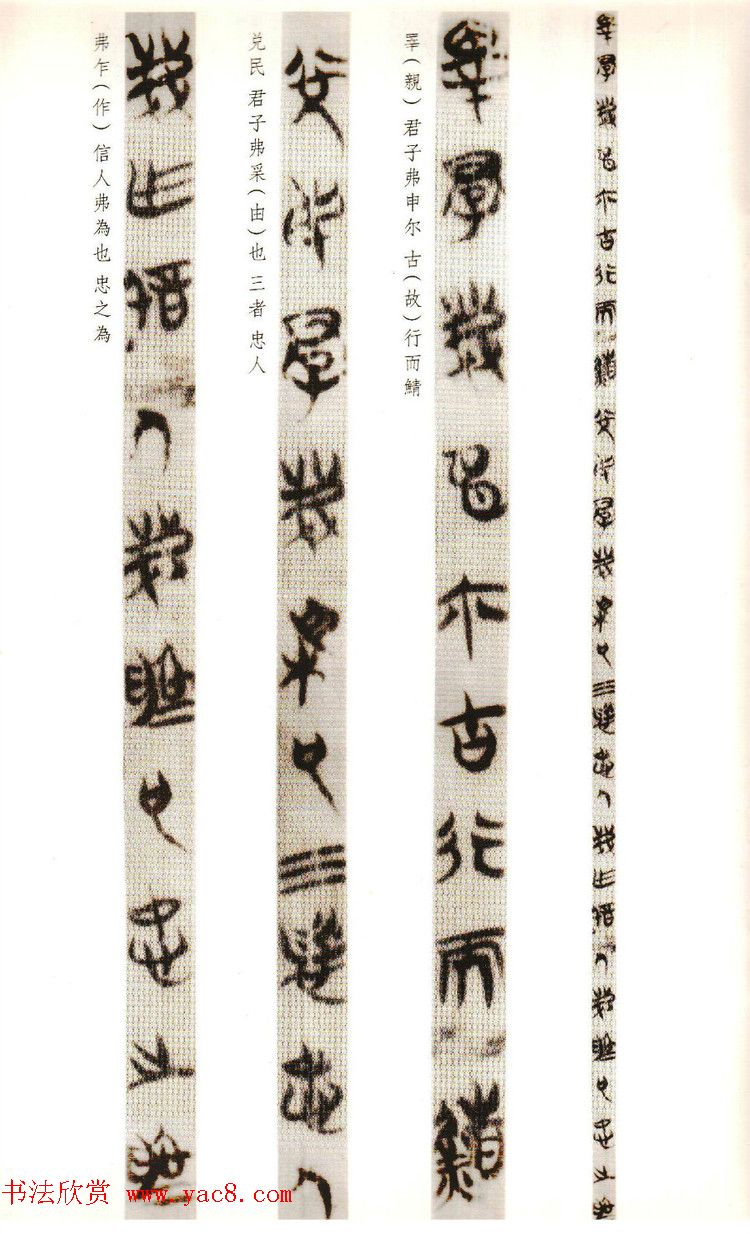 睪（親）君子弗申尔 古（故）行而鯖
兑民 君子弗采（由）也 三者 忠人
弗乍（作） 信人弗為也 忠之為
书法欣赏 www.yac8.com